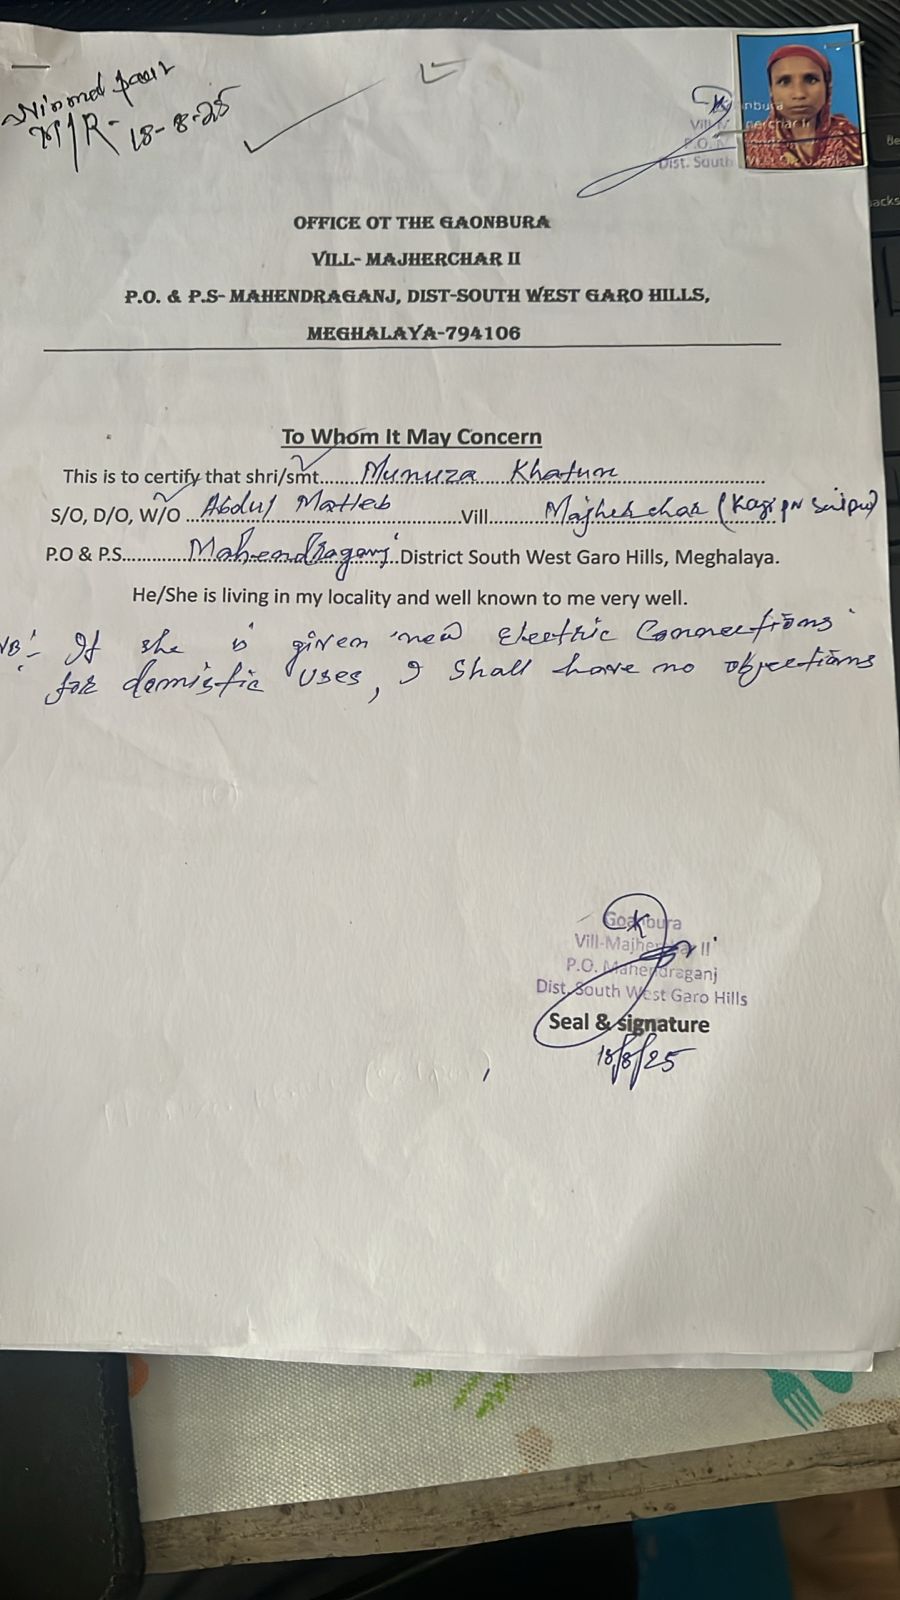 M/R- 18-8-25
Vill
P.O.
Dist. South West Garo Hills
OFFICE OT THE GAONBURA
VILL- MAJHERCHAR II
P.O. & P.S- MAHENDRAGANJ, DIST-SOUTH WEST GARO HILLS,
MEGHALAYA-794106
To Whom It May Concern
This is to certify that shri/smt......Munuza Khatun......
S/O, D/O, W/O ...Abdul Matleb......Vill......Majherchar (Kazipur
P.O & P.S............Mahendraganj...District South West Garo Hills, Meghalaya.
He/She is living in my locality and well known to me very well.
NB:- If she is given new Electric Connections
for domistic Uses, I Shall have no objections
Goanbura
Vill-Majherchar II
P.O. Mahendraganj
Dist. South West Garo Hills
Seal & signature
18/8/25